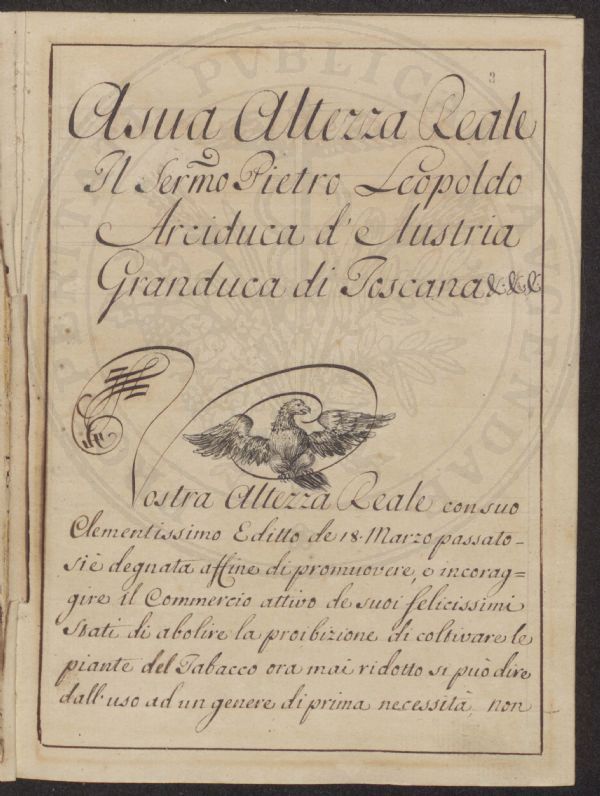 3
A sua Altezza Reale
Il Sermo Pietro Leopoldo
Arciduca d'Austria
Granduca di Toscana &. &. &
Vostra Altezza Reale con suo
Clementissimo Editto de 18. Marzo passato-
si è degnata affine di promuovere, e incorag=
gire il Commercio attivo de suoi felicissimi
Stati di abolire la proibizione di coltivare le
piante del Tabacco ora mai ridotto si può dire
dall'uso ad un genere di prima necessità, non